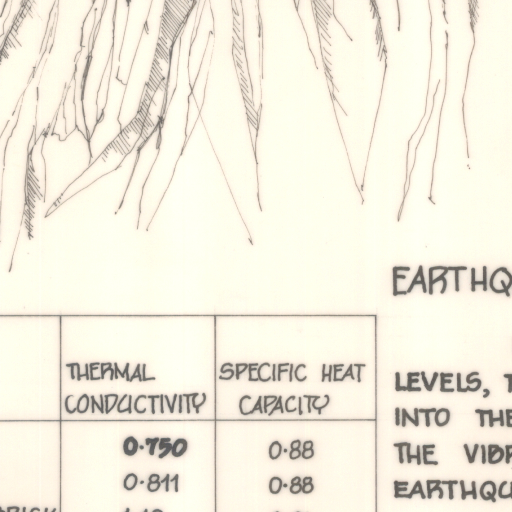 EARTHQ
THERMAL CONDUCTIVITY
SPECIFIC HEAT CAPACITY
0.750 0.88
0.811 0.88
LEVELS,
INTO THE
THE VIBR
EARTHQU